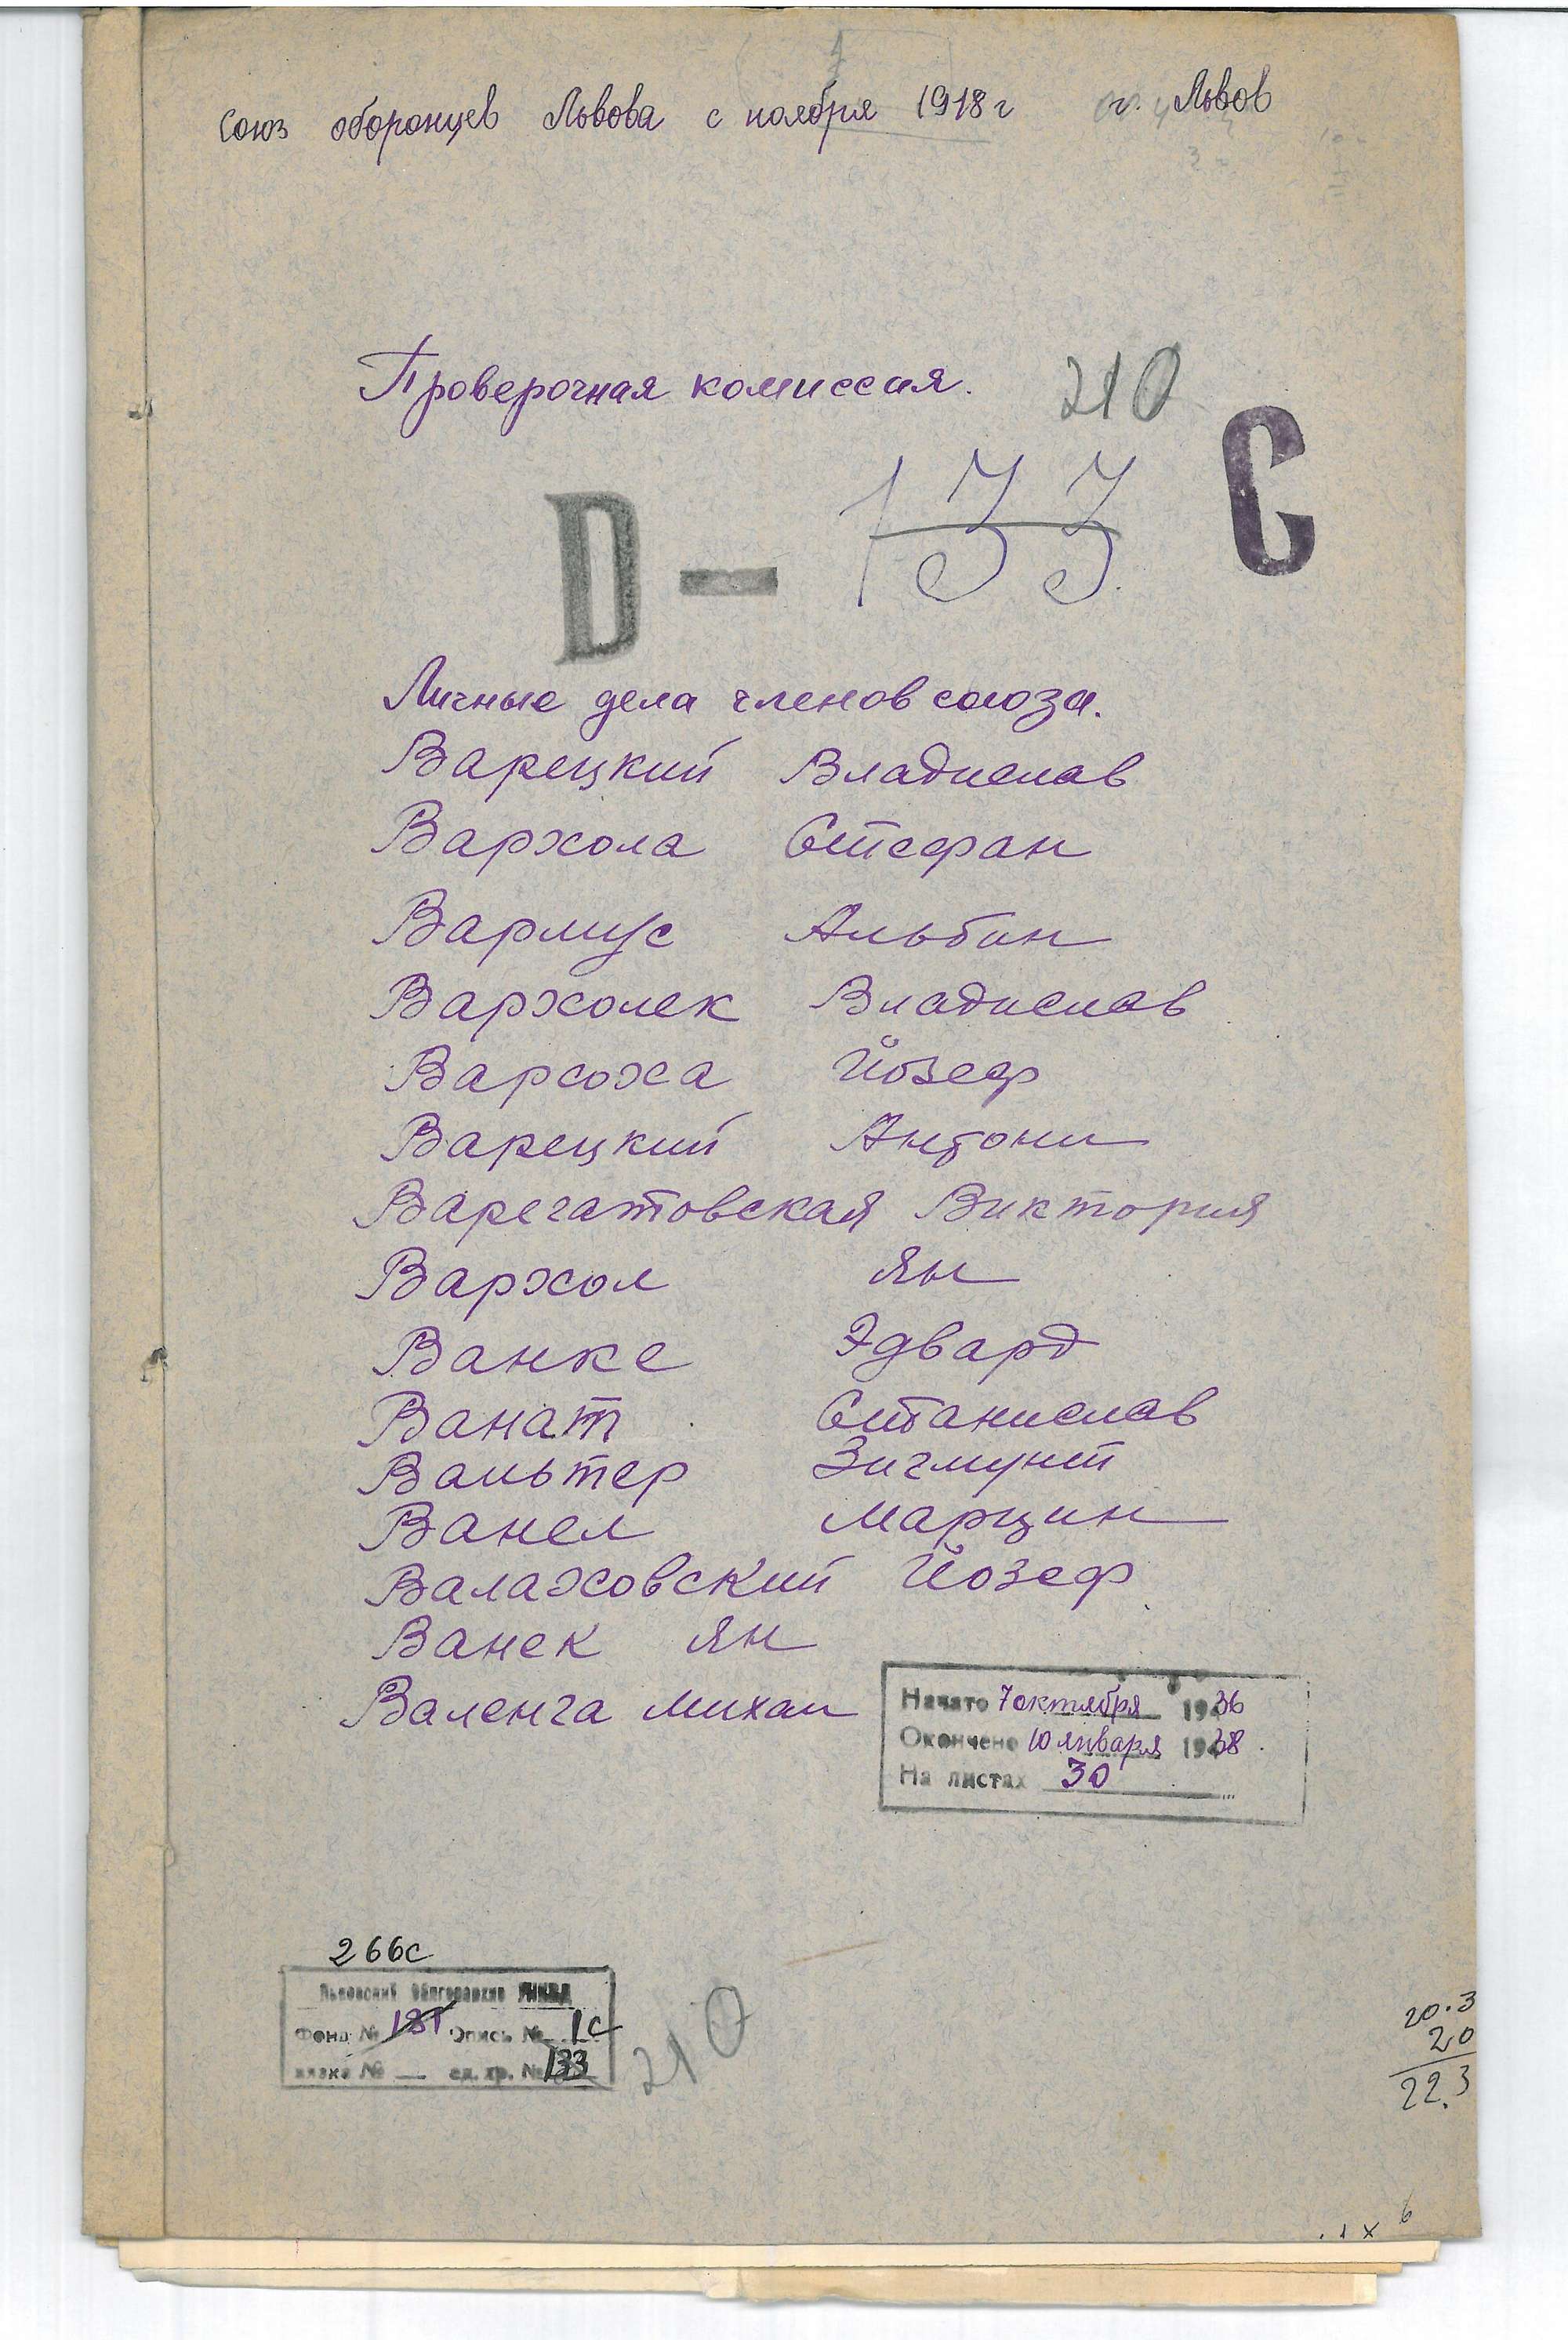 Союз оборонцев Львова с ноября 1918 г г. Львов
Проверочная комиссия.
210
С
D — 133
Личные дела членов союза.
Варецкий Владислав
Вархола Стефан
Вармус Альбин
Вархолек Владислав
Варсоха Йозеф
Варецкий Антони
Варегатовская Виктория
Вархол Ян
Ванке Эдвард
Ванат Станислав
Вальтер Зигмунт
Ванел Марцин
Валаховский Йозеф
Ванек Ян
Валенга Михал
Начато 7 октября 1936
Окончено 10 января 1938.
На листах 30
266с
Львовский Облгосархив УНКВД
Фонд № 181 Опись № 1с
вязка № — ед. хр. № 133
210
20.3
20
22.3